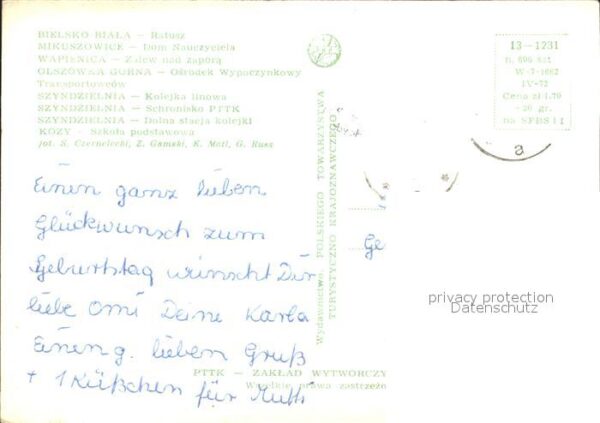 BIELSKO BIAŁA — Ratusz
MIKUSZOWICE — Dom Nauczyciela
WAPIENICA — Zalew nad zaporą
OLSZÓWKA GÓRNA — Ośrodek Wypoczynkowy
Transportowców
SZYNDZIELNIA — Kolejka linowa
SZYNDZIELNIA — Schronisko PTTK
SZYNDZIELNIA — Dolna stacja kolejki
KOZY — Szkoła podstawowa
fot. S. Czarnelecki, Z. Gamski, K. Matl, G. Russ
Einen ganz lieben
Glückwunsch zum
Geburtstag wünscht Dir
liebe Omi Deine Karla
Einen g. lieben Gruß
+ 1 Küßchen für Mutti
Wydawnictwo POLSKIEGO TOWARZYSTWA
TURYSTYCZNO KRAJOZNAWCZEGO
PTTK — ZAKŁAD WYTWÓRCZY
Wszelkie prawa zastrzeżo
13-1231
W-7-1662
IV-72
Cena zł 1.70
+ 30 gr.
na SFBS i I
a
Ge
privacy protection
Datenschutz